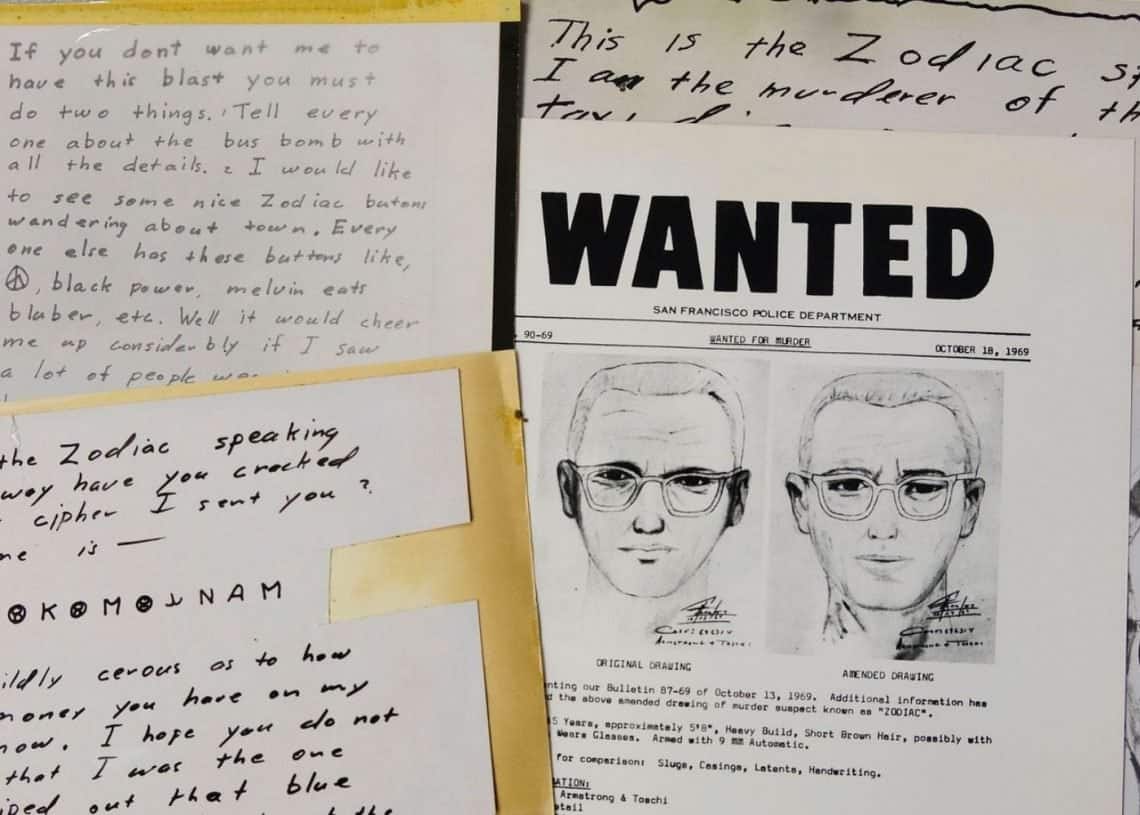 If you dont want me to
have this blast you must
do two things. 1 Tell every
one about the bus bomb with
all the details. 2 I would like
to see some nice Zodiac butons
wandering about town. Every
one else has these buttons like,
☮, black power, melvin eats
bluber, etc. Well it would cheer
me up considerbly if I saw
a lot of people
the Zodiac speaking
way have you cracked
cipher I sent you ?
me is —
K M NAM
ildly cerous as to how
money you have on my
now. I hope you do not
that I was the one
iped out that blue
This is the Zodiac
I am the murderer of th
WANTED
SAN FRANCISCO POLICE DEPARTMENT
90-69 WANTED FOR MURDER OCTOBER 18, 1969
ORIGINAL DRAWING AMENDED DRAWING
nting our Bulletin 87-69 of October 13, 1969. Additional information has
d the above amended drawing of murder suspect known as "ZODIAC".
5 Years, approximately 5'8", Heavy Build, Short Brown Hair, possibly with
Wears Glasses. Armed with 9 MM Automatic.
for comparison: Slugs, Casings, Latents, Handwriting.
ATION:
Armstrong & Toschi
etail